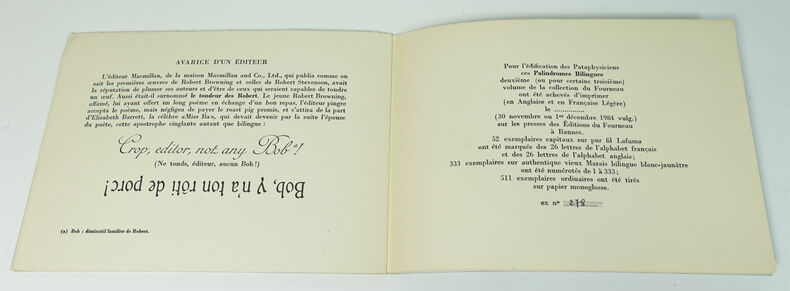 AVARICE D'UN ÉDITEUR
L'éditeur Macmillan, de la maison Macmillan and Co., Ltd., qui publia comme on
sait les premières œuvres de Robert Browning et celles de Robert Stevenson, avait
la réputation de plumer ses auteurs et d'être de ceux qui seraient capables de tondre
un œuf. Aussi était-il surnommé le tondeur des Robert. Le jeune Robert Browning,
affamé, lui ayant offert un long poème en échange d'un bon repas, l'éditeur pingre
accepta le poème, mais négligea de payer le roast pig promis, et s'attira de la part
d'Elizabeth Barrett, la célèbre «Miss Ba», qui devait devenir par la suite l'épouse
du poète, cette apostrophe cinglante autant que bilingue :
Crop, editor, not any Bob(a)!
(Ne tonds, éditeur, aucun Bob!)
Bob, y n'a ton rôti de porc!
(a) Bob : diminutif familier de Robert.
Pour l'édification des Pataphysiciens
ces Palindromes Bilingues
deuxième (ou pour certains troisième)
volume de la collection du Fourneau
ont été achevés d'imprimer
(en Anglaise et en Française Légère)
le ...............
(30 novembre ou 1er décembre 1984 vulg.)
sur les presses des Éditions du Fourneau
à Bannes.
52 exemplaires capitaux sur pur fil Lafuma
ont été marqués des 26 lettres de l'alphabet français
et des 26 lettres de l'alphabet anglais;
333 exemplaires sur authentique vieux Marais bilingue blanc-jaunâtre
ont été numérotés de 1 à 333;
511 exemplaires ordinaires ont été tirés
sur papier monoglosse.
ex nº 278